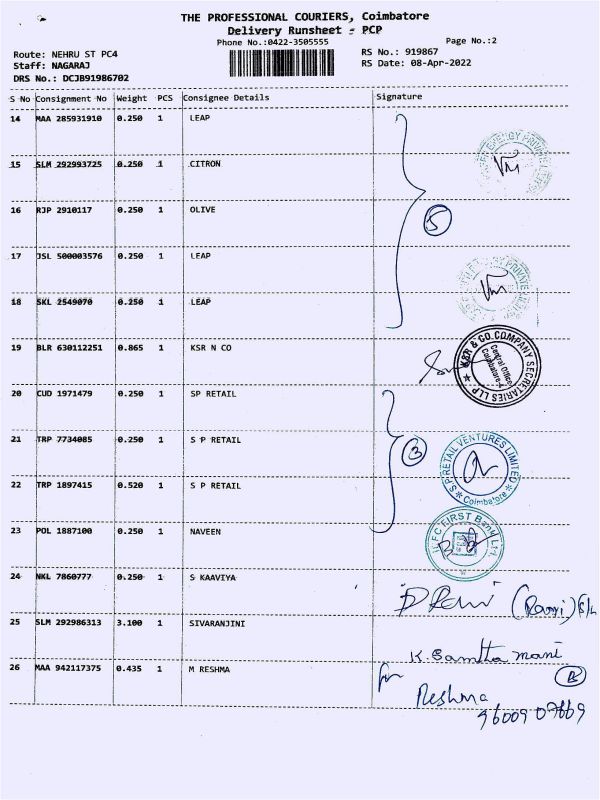 THE PROFESSIONAL COURIERS, Coimbatore
Delivery Runsheet - PCP
Phone No.:0422-3505555
Page No.:2
Route: NEHRU ST PC4
RS No.: 919867
Staff: NAGARAJ
RS Date: 08-Apr-2022
DRS No.: DCJB91986702
S No Consignment No Weight PCS Consignee Details Signature
14 MAA 285931910 0.250 1 LEAP
15 SLM 292993725 0.250 1 CITRON
16 RJP 2910117 0.250 1 OLIVE
5
17 JSL 500003576 0.250 1 LEAP
18 SKL 2549070 0.250 1 LEAP
19 BLR 630112251 0.865 1 KSR N CO
KSR & CO COMPANY SECRETARIES LLP
Central Office
Coimbatore-4
20 CUD 1971479 0.250 1 SP RETAIL
21 TRP 7734085 0.250 1 S P RETAIL
3
S P RETAIL VENTURES LIMITED
Coimbatore
22 TRP 1897415 0.520 1 S P RETAIL
23 POL 1887100 0.250 1 NAVEEN
IDFC FIRST Bank Ltd.
24 NKL 7860777 0.250 1 S KAAVIYA
25 SLM 292986313 3.100 1 SIVARANJINI
26 MAA 942117375 0.435 1 M RESHMA
for
Reshma